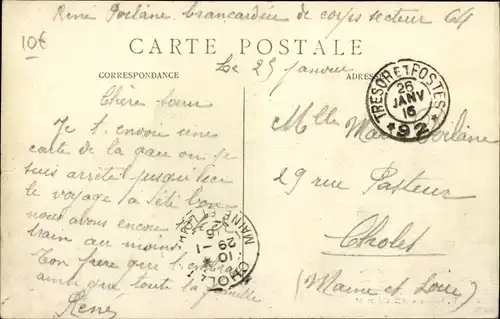 René Poilâne brancardier de corps secteur 64
10€
CARTE POSTALE
CORRESPONDANCE
Le 25 janvier
ADRES
TRESOR ET POSTES
26
JANV
16
* 92 *
Chère soeur
Je t'envoie une
carte de la gare où je
suis arrêté jusqu'ici
le voyage a été bon
nous avons encore
train au moins
Ton frère qui t'embrasse
ainsi que toute la famille
René
Mlle Marie Poilâne
29 rue Pasteur
Cholet
(Maine et Loire)
CHOLET
MAINE
29 -1